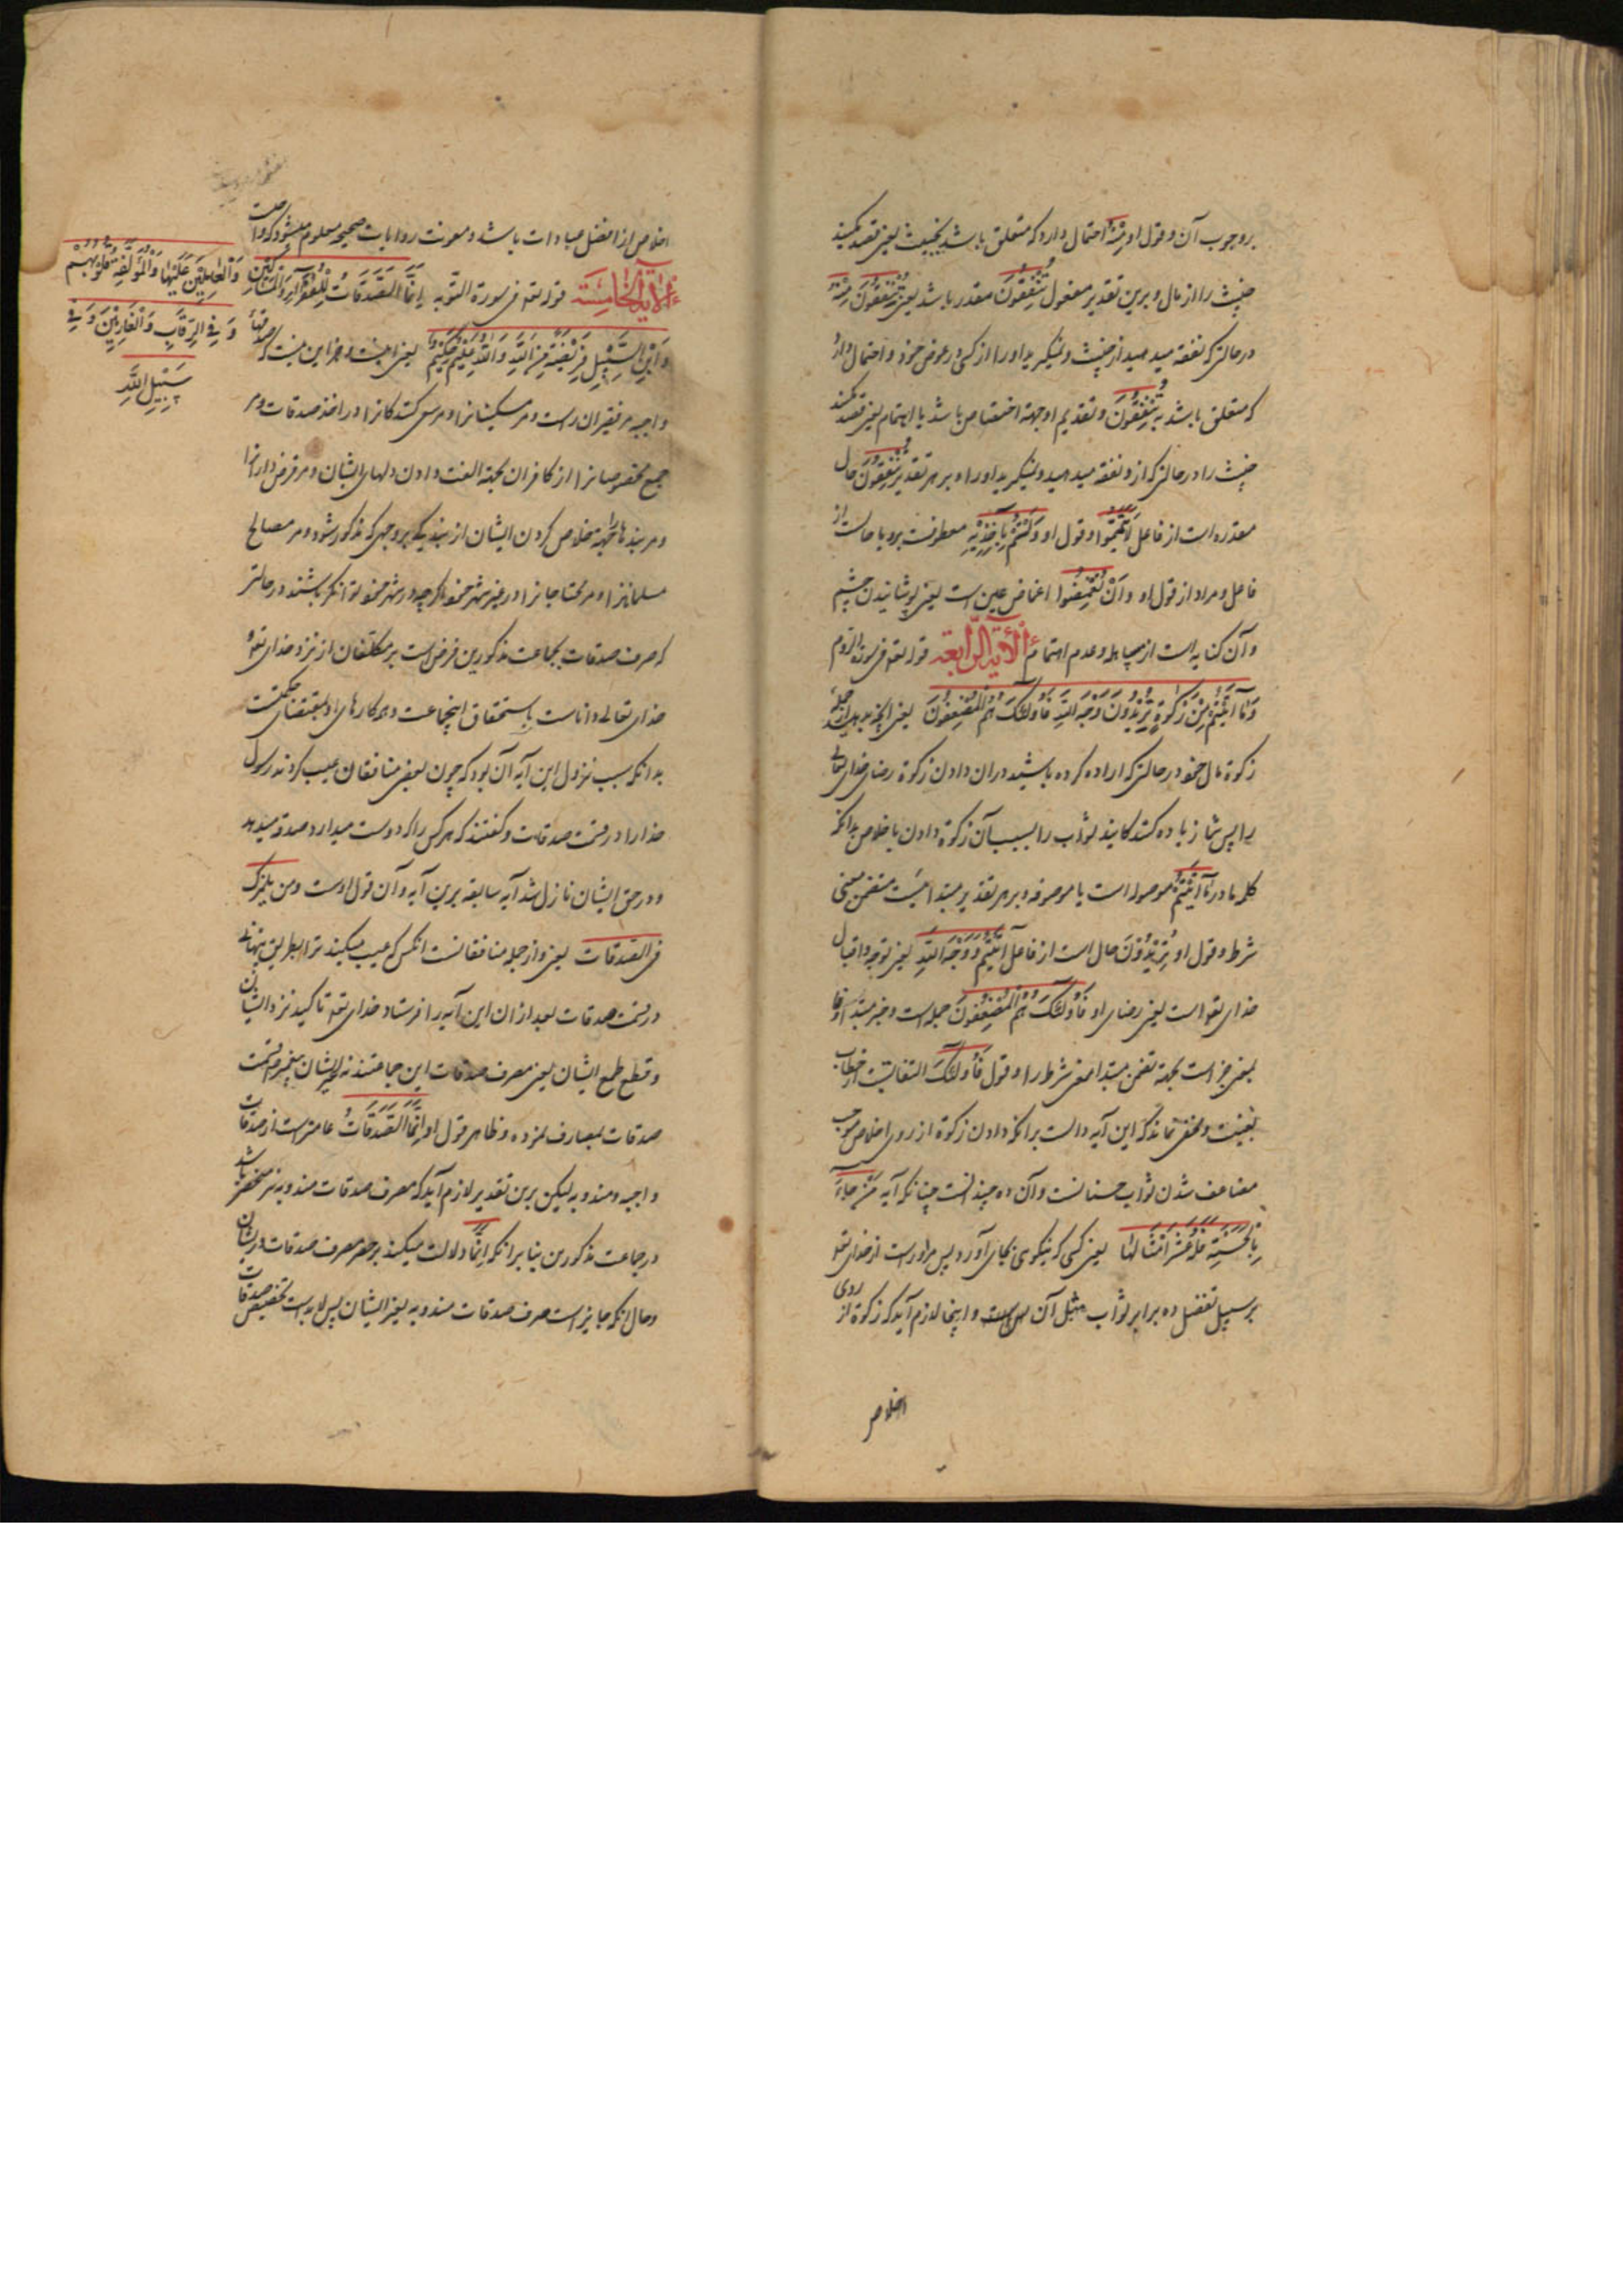 بر وجوب آن و قول او مِنْهُ احتمال دارد که متعلق باشد بخبیث یعنی قصد مکنید
خبیث را از مال و برین تقدیر مفعول تُنْفِقُونَ مقدر باشد یعنی تُنْفِقُونَ مِنْهُ
در حالتی که نفقه میدهید از خبیث و نمیگیرید او را از کسی در عوض حق خود و احتمال دارد
که متعلق باشد به تُنْفِقُونَ و تقدیم او جهة اختصاص باشد یا اهتمام یعنی قصد مکنید
خبیث را در حالتی که ازو نفقه میدهید و نمیگیرید او را و بر هر تقدیر تُنْفِقُونَ حال
مقدره است از فاعل لَا تَيَمَّمُوا و قول او وَلَسْتُمْ بِآخِذِيهِ معطوفست برو یا حالست از
فاعل و مراد از قول او وَأَنْ تُغْمِضُوا اغماض عین است یعنی پوشانیدن چشم
و آن کنایه است از مساهله و عدم اهتمام الآیة الرابعة قوله تعه فی سورة الروم
وَمَا آتَيْتُمْ مِنْ زَكٰوةٍ تُرِيدُونَ وَجْهَ اللّٰهِ فَأُولٰئِكَ هُمُ الْمُضْعِفُونَ یعنی آنچه بدهید از جمله
زکوة مال خود در حالتی که اراده کرده باشید در آن دادن زکوة رضای خدای تعالی
را پس شما زیاده کنندکانید ثواب را بسبب آن زکوة دادن باخلاص بدانکه
کلمه ما در مَا آتَيْتُمْ موصوله است یا موصوفه و بر هر تقدیر مبتدا ایست متضمن معنی
شرط و قول او تُرِيدُونَ حال است از فاعل آتَيْتُمْ وَ وَجْهَ اللّٰهِ یعنی توجه و اقبال
خدای تعه است یعنی رضای او فَأُولٰئِكَ هُمُ الْمُضْعِفُونَ جمله است و خبر مبتدا و فا
بمعنی جزاست بجهة تضمن مبتدا معنی شرط را و قول فَأُولٰئِكَ التفاتیست از خطاب
بغیبت و مخفی نماند که این آیه دالست بر آنکه دادن زکوة از روی اخلاص موجب
مضاعف شدن ثواب حسناتست و آن ده چندانست چنانکه آیه مَنْ جَاءَ
بِالْحَسَنَةِ فَلَهُ عَشْرُ أَمْثَالِهَا یعنی کسی که نیکوی بجای آورد پس مر او راست از خدای تعه
بر سبیل تفضل ده برابر ثواب مثل آن و اینجا لازم آید که زکوة از روی
اخلاص
اخلاص از افضل عبادات باشد و معونت روایات صحیحه معلوم میشود که
الآیة الخامسة قوله تعه فی سورة التوبه إِنَّمَا الصَّدَقَاتُ لِلْفُقَرَاءِ وَالْمَسَاكِينِ
وَالْعَامِلِينَ عَلَيْهَا وَالْمُؤَلَّفَةِ قُلُوبُهُمْ
وَ فِي الرِّقَابِ وَالْغَارِمِينَ وَ فِي
سَبِيلِ اللّٰهِ
وَابْنِ السَّبِيلِ فَرِيضَةً مِنَ اللّٰهِ وَاللّٰهُ عَلِيمٌ حَكِيمٌ یعنی اینست و جز این نیست که صدقهاء
واجبه مر فقیران راست و مر مسکینانرا و مر سعی کنندکانرا در اخذ صدقات و مر
جمع مخصوصانرا از کافران بجهة الفت دادن دلهای ایشان و مر قرض دارانرا
و مر بندها را بجهة خلاص کردن ایشان از بندیکی بر وجهی که مذکور شود و مر مصالح
مسلمانانرا و مر محتاجانرا در غیر شهر خود اگرچه در شهر خود توانکر باشند در حالتی
که صرف صدقات بجماعت مذکورین فرض است بر مکلفان از نزد خدای تعه و
خدای تعالی داناست باستحقاق اینجماعت و کارهای او بمقتضای حکمتست
بدانکه سبب نزول این آیه آن بود که چون بعضی منافقان عیب کردند رسول
خدا را در قسمت صدقات و گفتند که هر کس را که دوست میدارد صدقه میدهد
و در حق ایشان نازل شد آیه سابقه برین آیه و آن قول اوست ومن یلمزک
فی الصدقات یعنی و از جمله منافقانست آنکس که عیب میکنید ترا بطریق پنهانی
در قسمت صدقات بعد از آن این آیه را فرستاد خدای تعه تاکید نزد ایشان
و قطع طمع ایشان یعنی مصرف صدقات این جماعتند نه غیر ایشان پیغمبر قسمت
صدقات بمصارف نموده و ظاهر قول او إِنَّمَا الصَّدَقَاتُ عام‌تر است از صدقات
واجبه و مندوبه لیکن برین تقدیر لازم آید که مصرف صدقات مندوبه نیز منحصر باشد
در جماعت مذکورین بنا بر آنکه إِنَّمَا دلالت میکند بر حصر مصرف صدقات در ایشان
و حال آنکه جایز است صرف صدقات مندوبه بغیر ایشان پس لابد است تخصیص صدقات